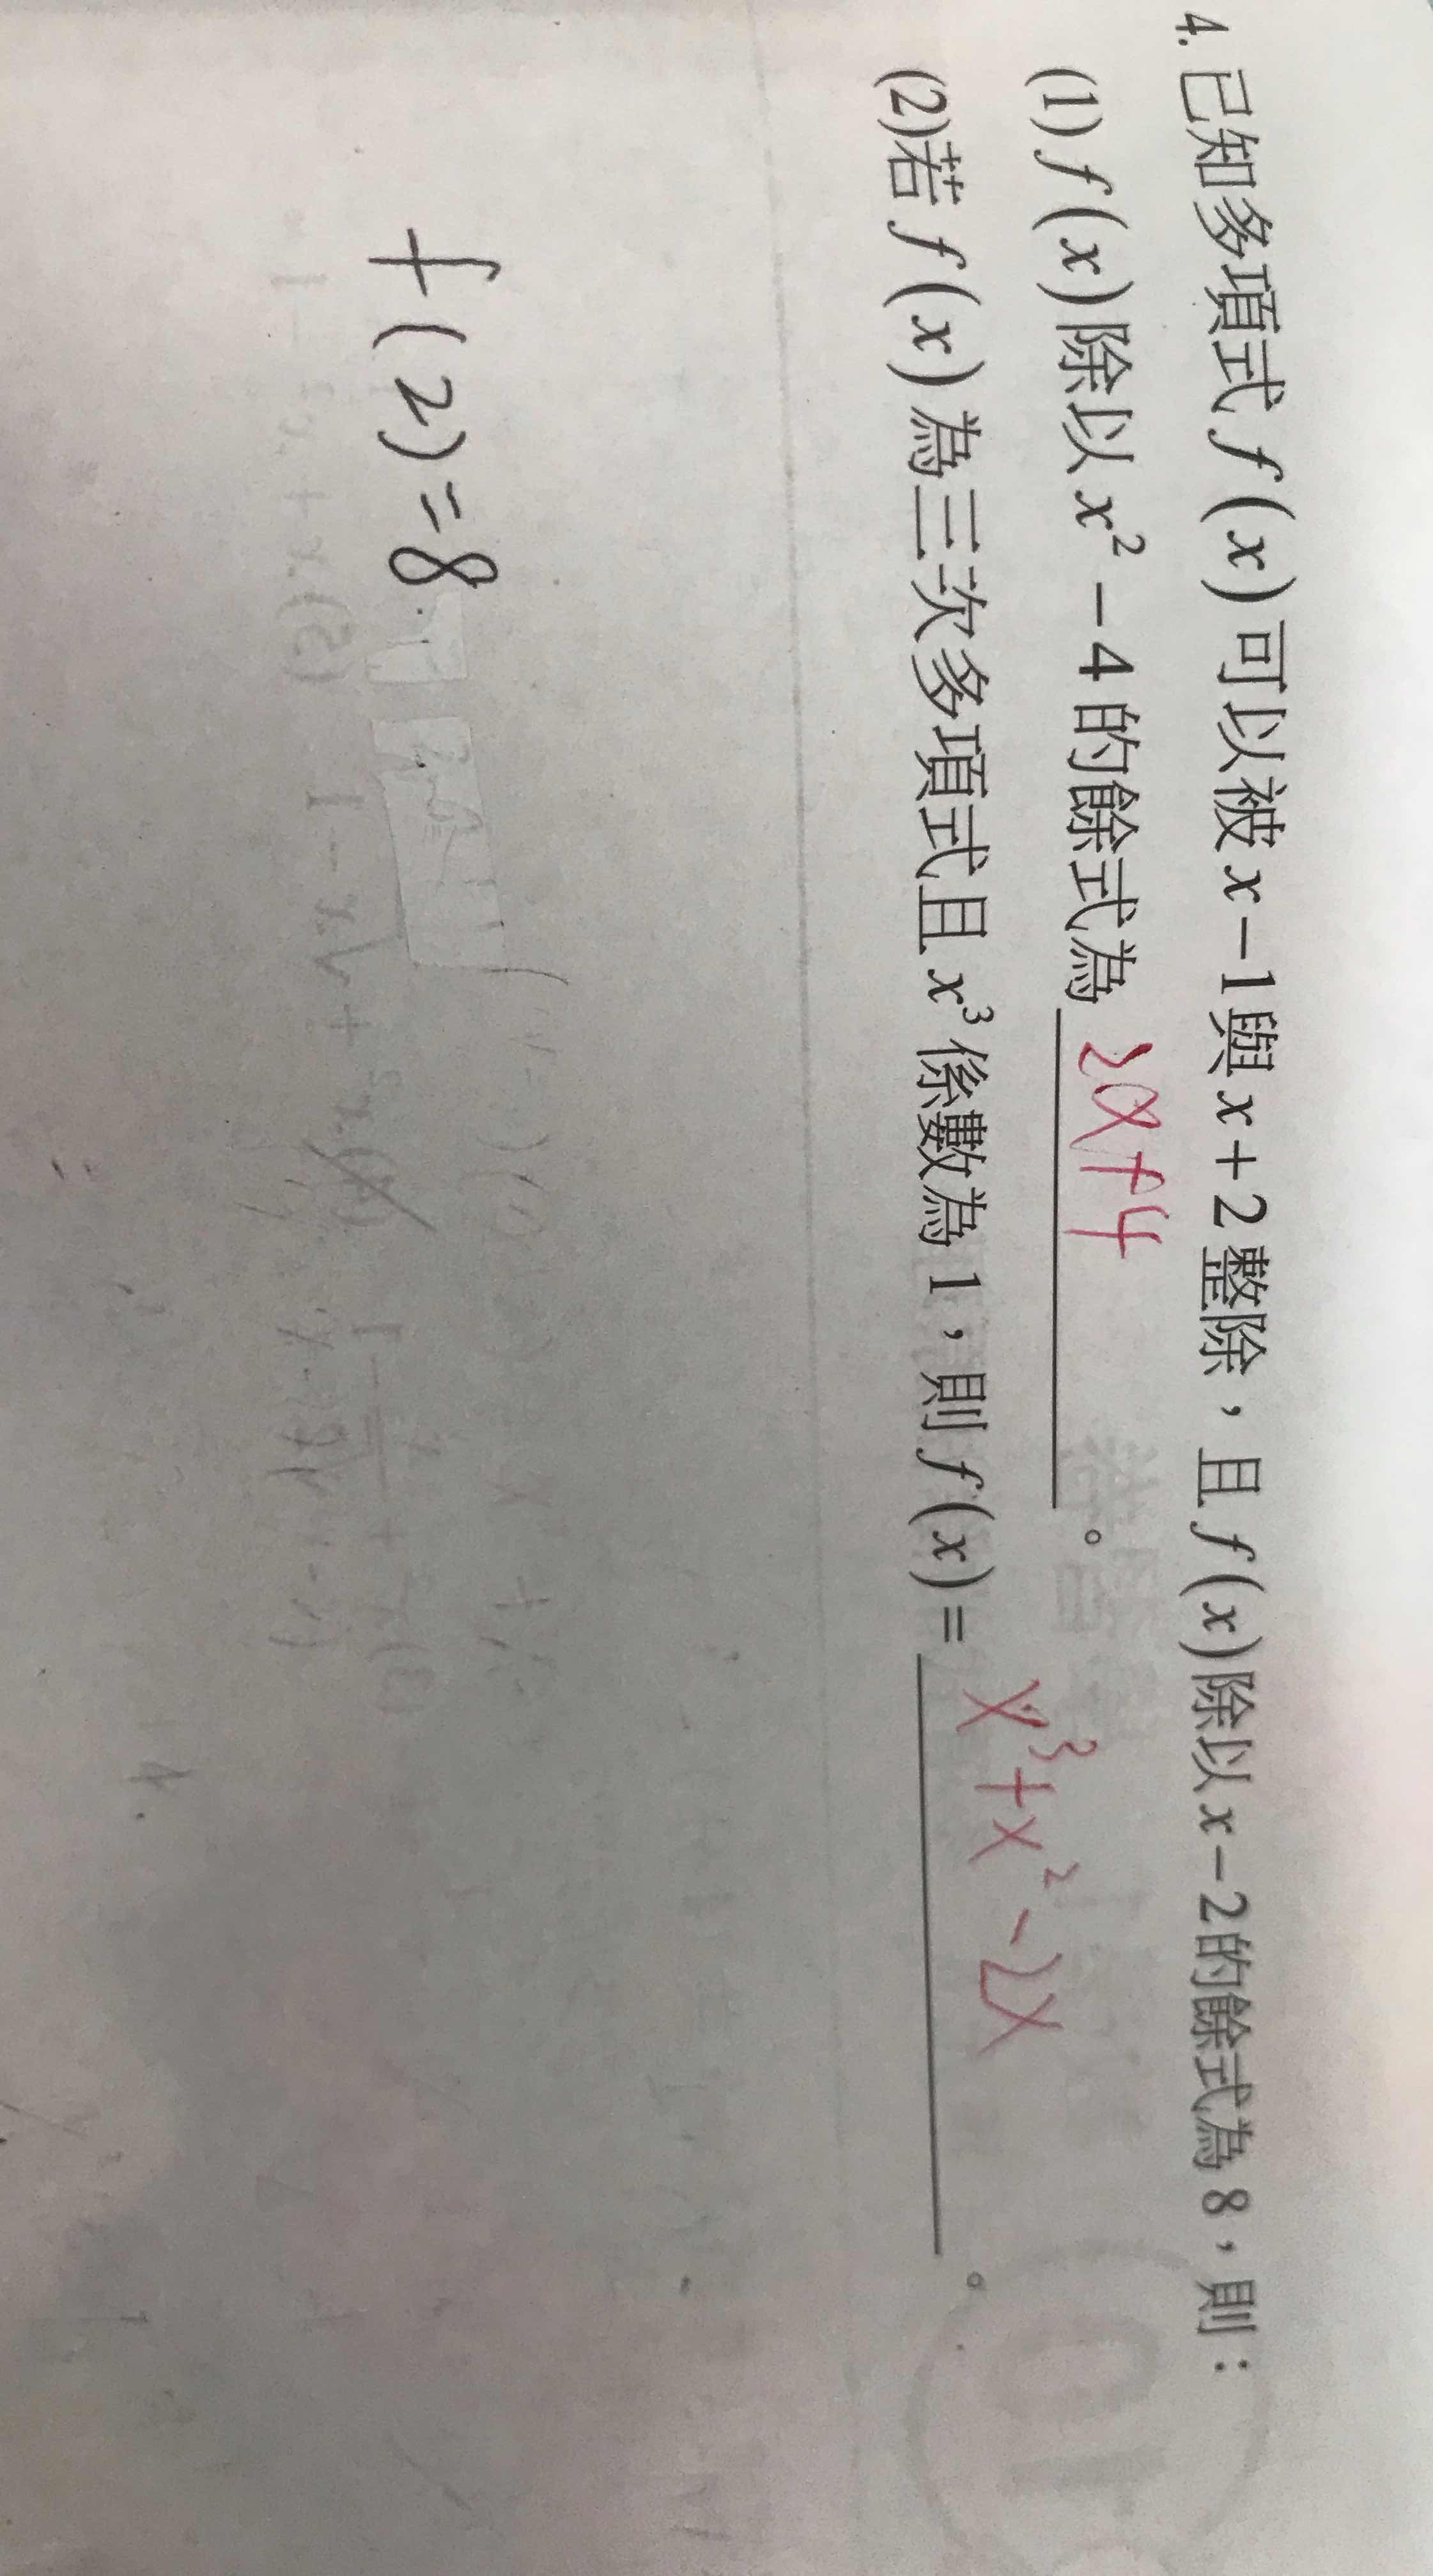 4. 已知多項式 f(x) 可以被 x-1 與 x+2 整除，且 f(x) 除以 x-2 的餘式為 8，則：
(1) f(x) 除以 x² -4 的餘式為 2x+4 。
(2)若 f(x) 為三次多項式且 x³ 係數為 1，則 f(x) = x³+x²-2x 。
f(2)=8